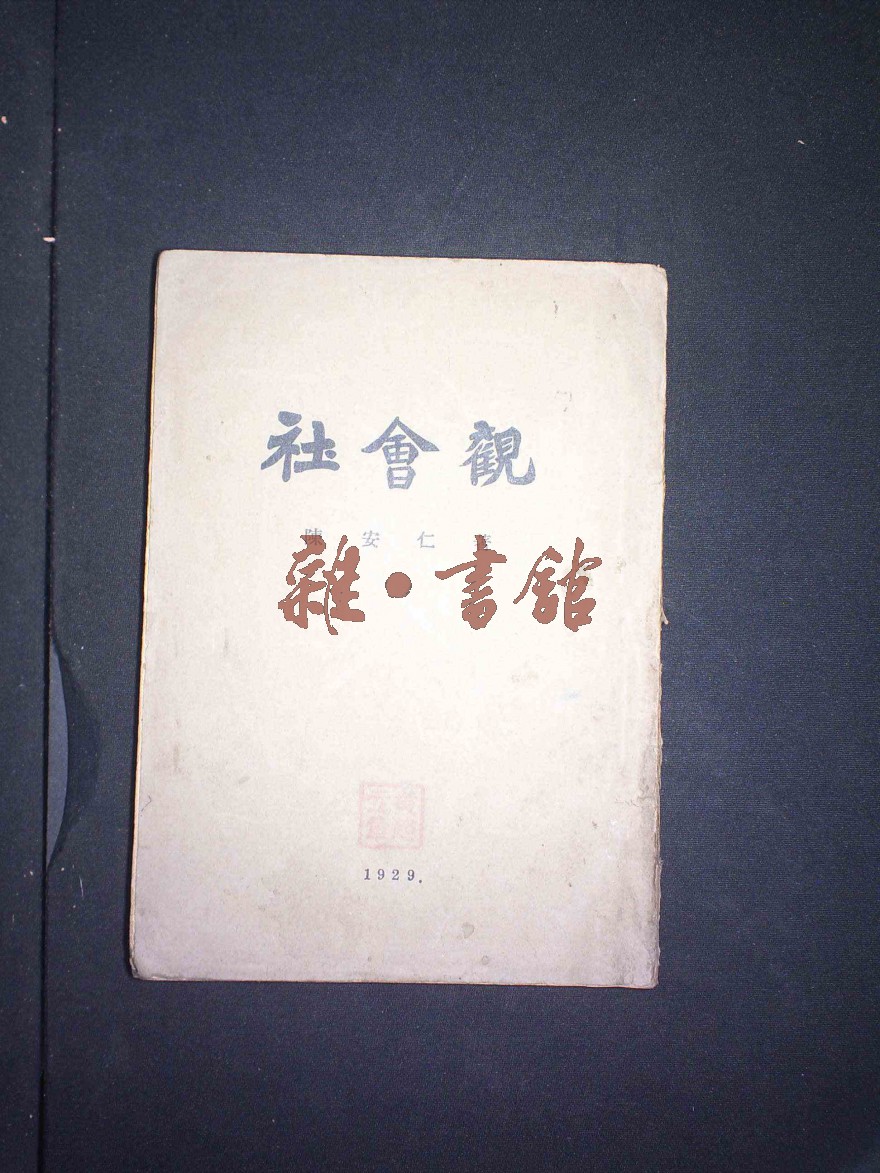 社會觀
陳安仁著
雜·書館
1929.